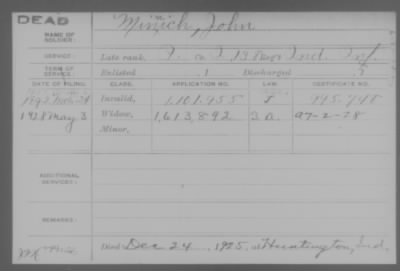 DEAD
"M."
Minich, John
NAME OF SOLDIER:
SERVICE:
Late rank, Co. I, 13 Reg't Ind. Inf.
TERM OF SERVICE:
Enlisted , 1 Discharged , 5
DATE OF FILING. CLASS. APPLICATION NO. LAW. CERTIFICATE NO.
1892 Invalid, 1,101,955 J
1928 May 3 Widow, 1,613,892 3.D. A7-2-28
Minor,
ADDITIONAL SERVICES:
REMARKS:
Died Dec 24, 1925, at Huntington, Ind.